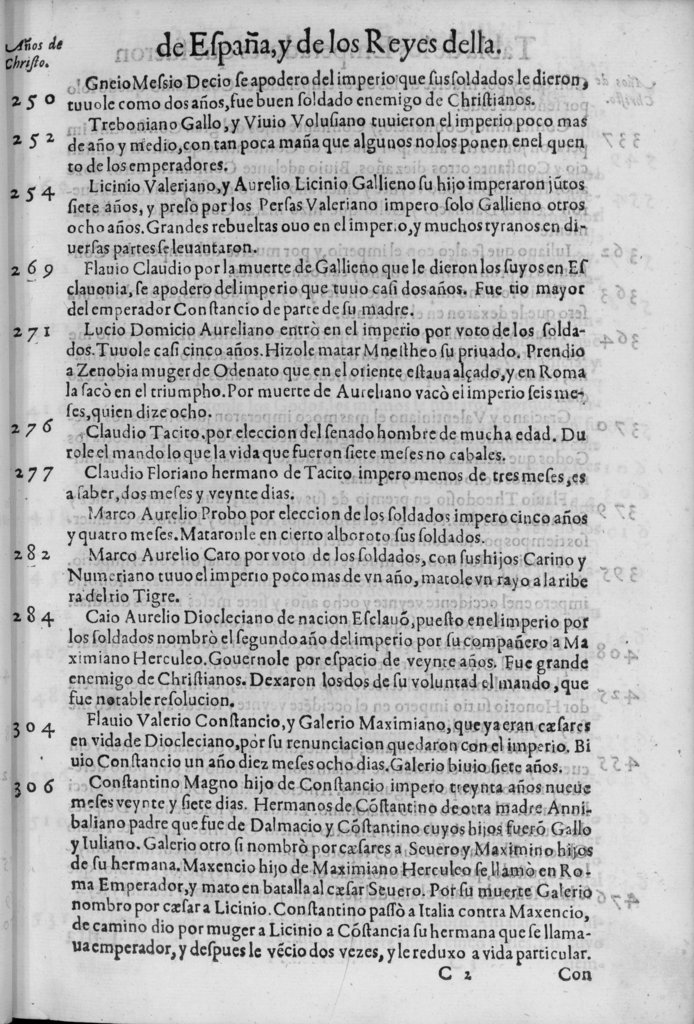 Años de
Christo.
de España, y de los Reyes della.
Gneio Messio Decio se apodero del imperio que sus soldados le dieron,
250 tuuole como dos años, fue buen soldado enemigo de Christianos.
Treboniano Gallo, y Viuio Volusiano tuuieron el imperio poco mas
252 de año y medio, con tan poca maña que algunos no los ponen en el quen
to de los emperadores.
254 Licinio Valeriano, y Aurelio Licinio Gallieno su hijo imperaron jũtos
siete años, y preso por los Persas Valeriano impero solo Gallieno otros
ocho años. Grandes rebueltas ouo en el imperio, y muchos tyranos en di-
uersas partes se leuantaron.
269 Flauio Claudio por la muerte de Gallieno que le dieron los suyos en Es
clauonia, se apodero del imperio que tuuo casi dos años. Fue tio mayor
del emperador Constancio de parte de su madre.
271 Lucio Domicio Aureliano entrò en el imperio por voto de los solda-
dos. Tuuole casi cinco años. Hizole matar Mnestheo su priuado. Prendio
a Zenobia muger de Odenato que en el oriente estaua alçado, y en Roma
la sacò en el triumpho. Por muerte de Aureliano vacò el imperio seis me-
ses, quien dize ocho.
276 Claudio Tacito, por eleccion del senado hombre de mucha edad. Du
role el mando lo que la vida que fueron siete meses no cabales.
277 Claudio Floriano hermano de Tacito impero menos de tres meses, es
a saber, dos meses y veynte dias.
Marco Aurelio Probo por eleccion de los soldados impero cinco años
y quatro meses. Mataronle en cierto alboroto sus soldados.
282 Marco Aurelio Caro por voto de los soldados, con sus hijos Carino y
Numeriano tuuo el imperio poco mas de vn año, matole vn rayo a la ribe
ra del rio Tigre.
284 Caio Aurelio Diocleciano de nacion Esclauõ, puesto en el imperio por
los soldados nombrò el segundo año del imperio por su compañero a Ma
ximiano Herculeo. Gouernole por espacio de veynte años. Fue grande
enemigo de Christianos. Dexaron los dos de su voluntad el mando, que
fue notable resolucion.
304 Flauio Valerio Constancio, y Galerio Maximiano, que ya eran cæsares
en vida de Diocleciano, por su renunciacion quedaron con el imperio. Bi
uio Constancio un año diez meses ocho dias. Galerio biuio siete años.
306 Constantino Magno hijo de Constancio impero treynta años nueue
meses veynte y siete dias. Hermanos de Cõstantino de otra madre Anni-
baliano padre que fue de Dalmacio y Cõstantino cuyos hijos fuerõ Gallo
y Iuliano. Galerio otro si nombrò por cæsares a Seuero y Maximino hijos
de su hermana. Maxencio hijo de Maximiano Herculeo se llamò en Ro-
ma Emperador, y mato en batalla al cæsar Seuero. Por su muerte Galerio
nombro por cæsar a Licinio. Constantino passò a Italia contra Maxencio,
de camino dio por muger a Licinio a Cõstancia su hermana que se llama-
ua emperador, y despues le vẽcio dos vezes, y le reduxo a vida particular.
C 2 Con